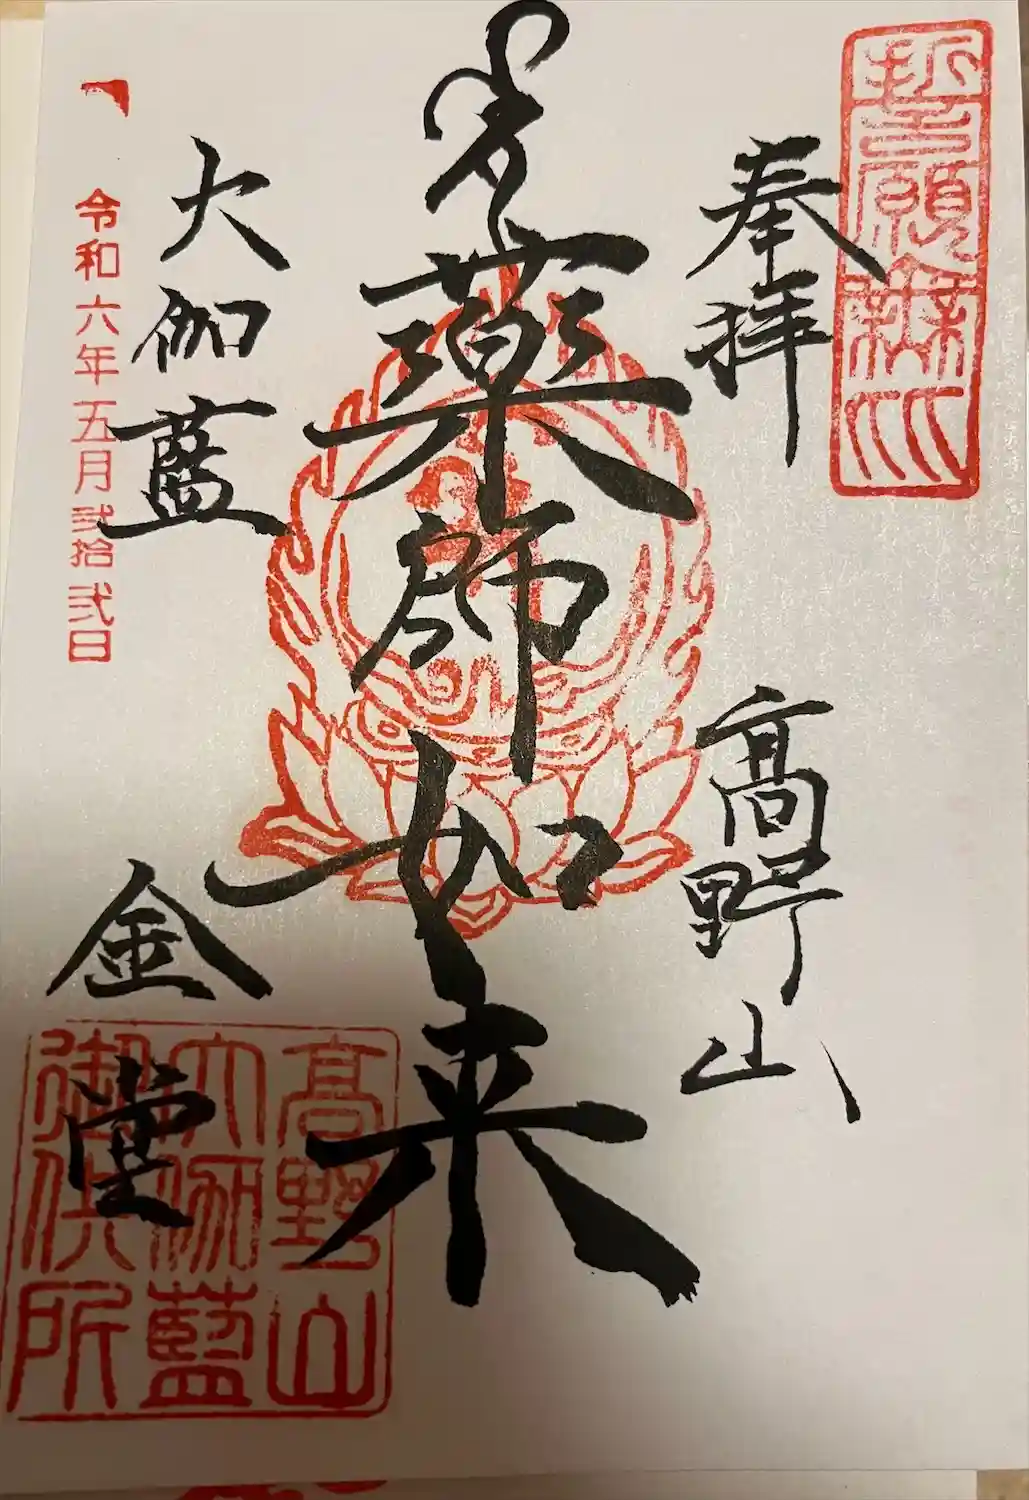 誓願無比
奉拝
高野山
薬師如来
大伽藍
金堂
令和六年五月弐拾弐日
高野山
大伽藍
御供所